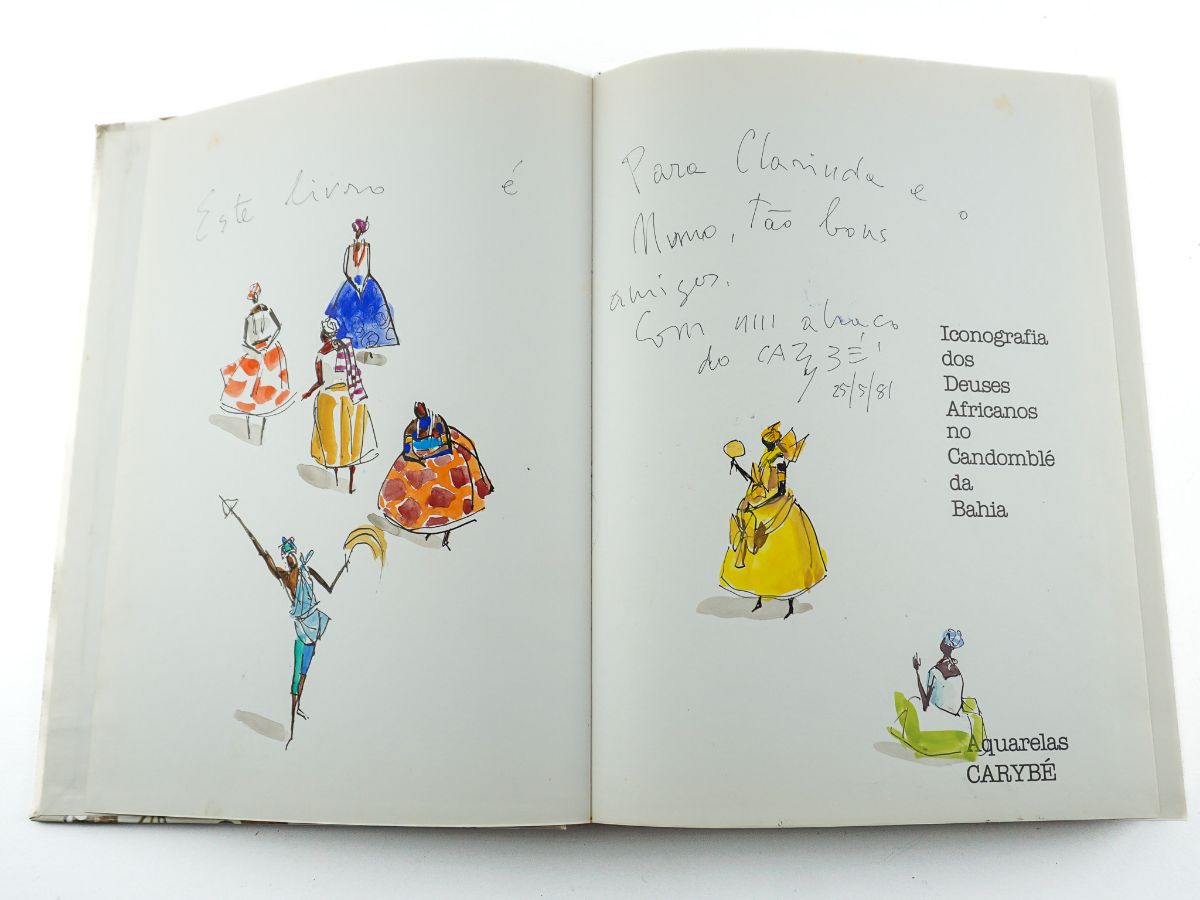 Este livro é
Para Clarinda e o
Mumo, tão bons
amigos.
Com um abraço
do CARYBÉ
25/5/81
Iconografia
dos
Deuses
Africanos
no
Candomblé
da
Bahia
Aquarelas
CARYBÉ